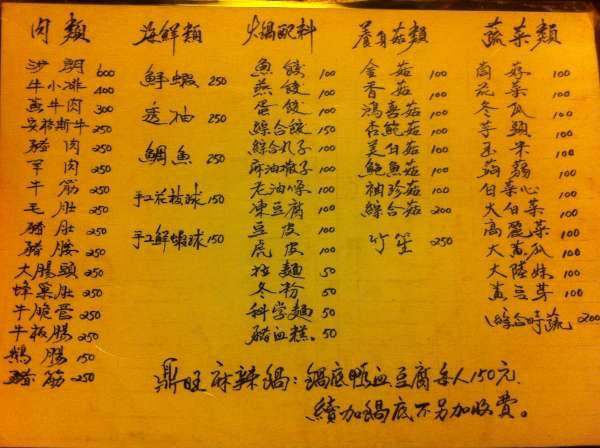 肉類
沙朗 600
牛小排 400
燕牛肉 300
安格斯牛 250
豬肉 250
羊肉 250
牛筋 250
毛肚 250
豬肚 250
豬腰 250
大腸頭 250
蜂巢肚 250
牛脆管 250
牛板腸 250
鵝腸 150
豬筋 250
海鮮類
鮮蝦 250
透抽 250
鯛魚 250
手工花枝球 150
手工鮮蝦球 150
火鍋配料
魚餃 100
燕餃 100
蛋餃 100
綜合餃 150
綜合丸子 100
麻油猴子 100
老油條 100
凍豆腐 100
豆皮 100
虎皮 100
拉麵 50
冬粉 50
科学麵 50
豬血糕 50
養身菇類
金菇 100
香菇 100
鴻喜菇 100
杏鮑菇 100
美白菇 100
鮑魚菇 100
袖珍菇 100
綜合菇 200
竹笙 250
蔬菜類
茼蒿 100
菠菜 100
冬瓜 100
芋頭 100
玉米 100
蒟蒻 100
白菜心 100
大白菜 100
高麗菜 100
大黃瓜 100
大陸妹 100
黃豆芽 100
綜合時蔬 200
鼎旺麻辣鍋：鍋底鴨血豆腐每人150元.
續加鍋底不另加收費。